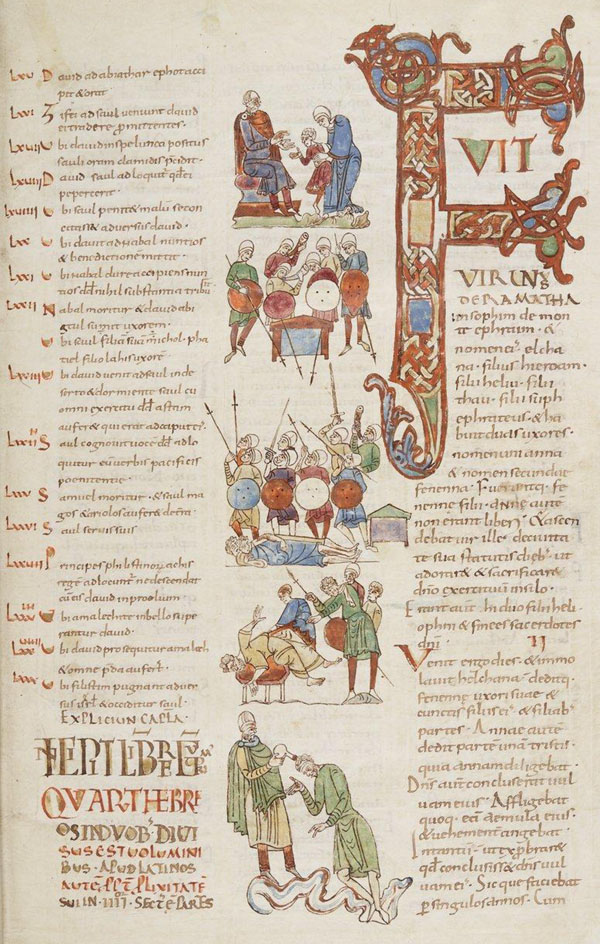 LXV David ad abiathar ephot acci
pit & orat
LXVI Zifei ad saul veniunt david
ei tradere promittentes.
LXVII Ubi david in spelunca positus
sauli oram clamidis pcidit.
LXVIII David saul adloquit qd ei
pepercerit.
LXVIIII Ubi saul penit & malu se con
fessus adversus david.
LXX Ubi david ad nabal nuntios
& benedictione mittit.
LXXI Ubi nabal dure accipiens nun
tios dd nihil substantia tribu
LXXII Nabal moritur & david abi
gail sumit uxorem.
Ubi saul filiam suam michol pha
tiel filio lahis uxore
Ubi david venit ad saul inde
serto & dormiente saul cu
omni exercitu dd astam
aufert & qui erat ad caput ei
Saul cognovit voce dd adlo
quitur eum verbis pacificis
poenitentie
LXXV Samuel moritur & saul ma
gos & ariolos aufert de terra
LXXVI Saul servis suis
Principes philistinor achis
rege adlocunt ne descendat
cu eis david in proelium
Ubi amalechite in bello supe
rantur david.
Ubi david prosequitur amalech
& omne preda aufert.
Ubi filistim pugnant adver
sus isrl & occiditur saul.
EXPLICIUN CAPLA
QUARTHEBRE
OS IN DVOB DIVI
SUS EST VOLUMINI
BUS APUD LATINOS
AUTE
SUI IN IIII SECTE PARTES
FVIT
VIR UNS
DE RAMATHA
im sophim de mon
te ephraim &
nomen ei elcha
na filius hieroam
filii heliu filii
thau filii suph
ephrateus & ha
buit duas uxores
nomen uni anna
& nomen secundae
fenenna. Fuerantq. fe
nenne filii. Anne aute
non erant liberi. & ascen
debat vir ille de civita
te sua statutis dieb ut
adoraret & sacrificaret
dno exercituu in silo.
Erant aut ibi duo filii heli
ophni & finees sacerdotes
dni. II
Venit ergo dies & immo
lavit helchana deditq.
fenenne uxori suae &
cunctis filiis ei & filiab
partes. Annae aute
dedit parte una tristis
quia annam diligebat.
Dns aut concluserat vul
vam eius. Affligebat
quoq. ea aemula eius
& vehementer angebat
Intantu ut exprobraret
qd conclusiss& dns vul
vam ei. Sicque faciebat
per singulos annos. Cum